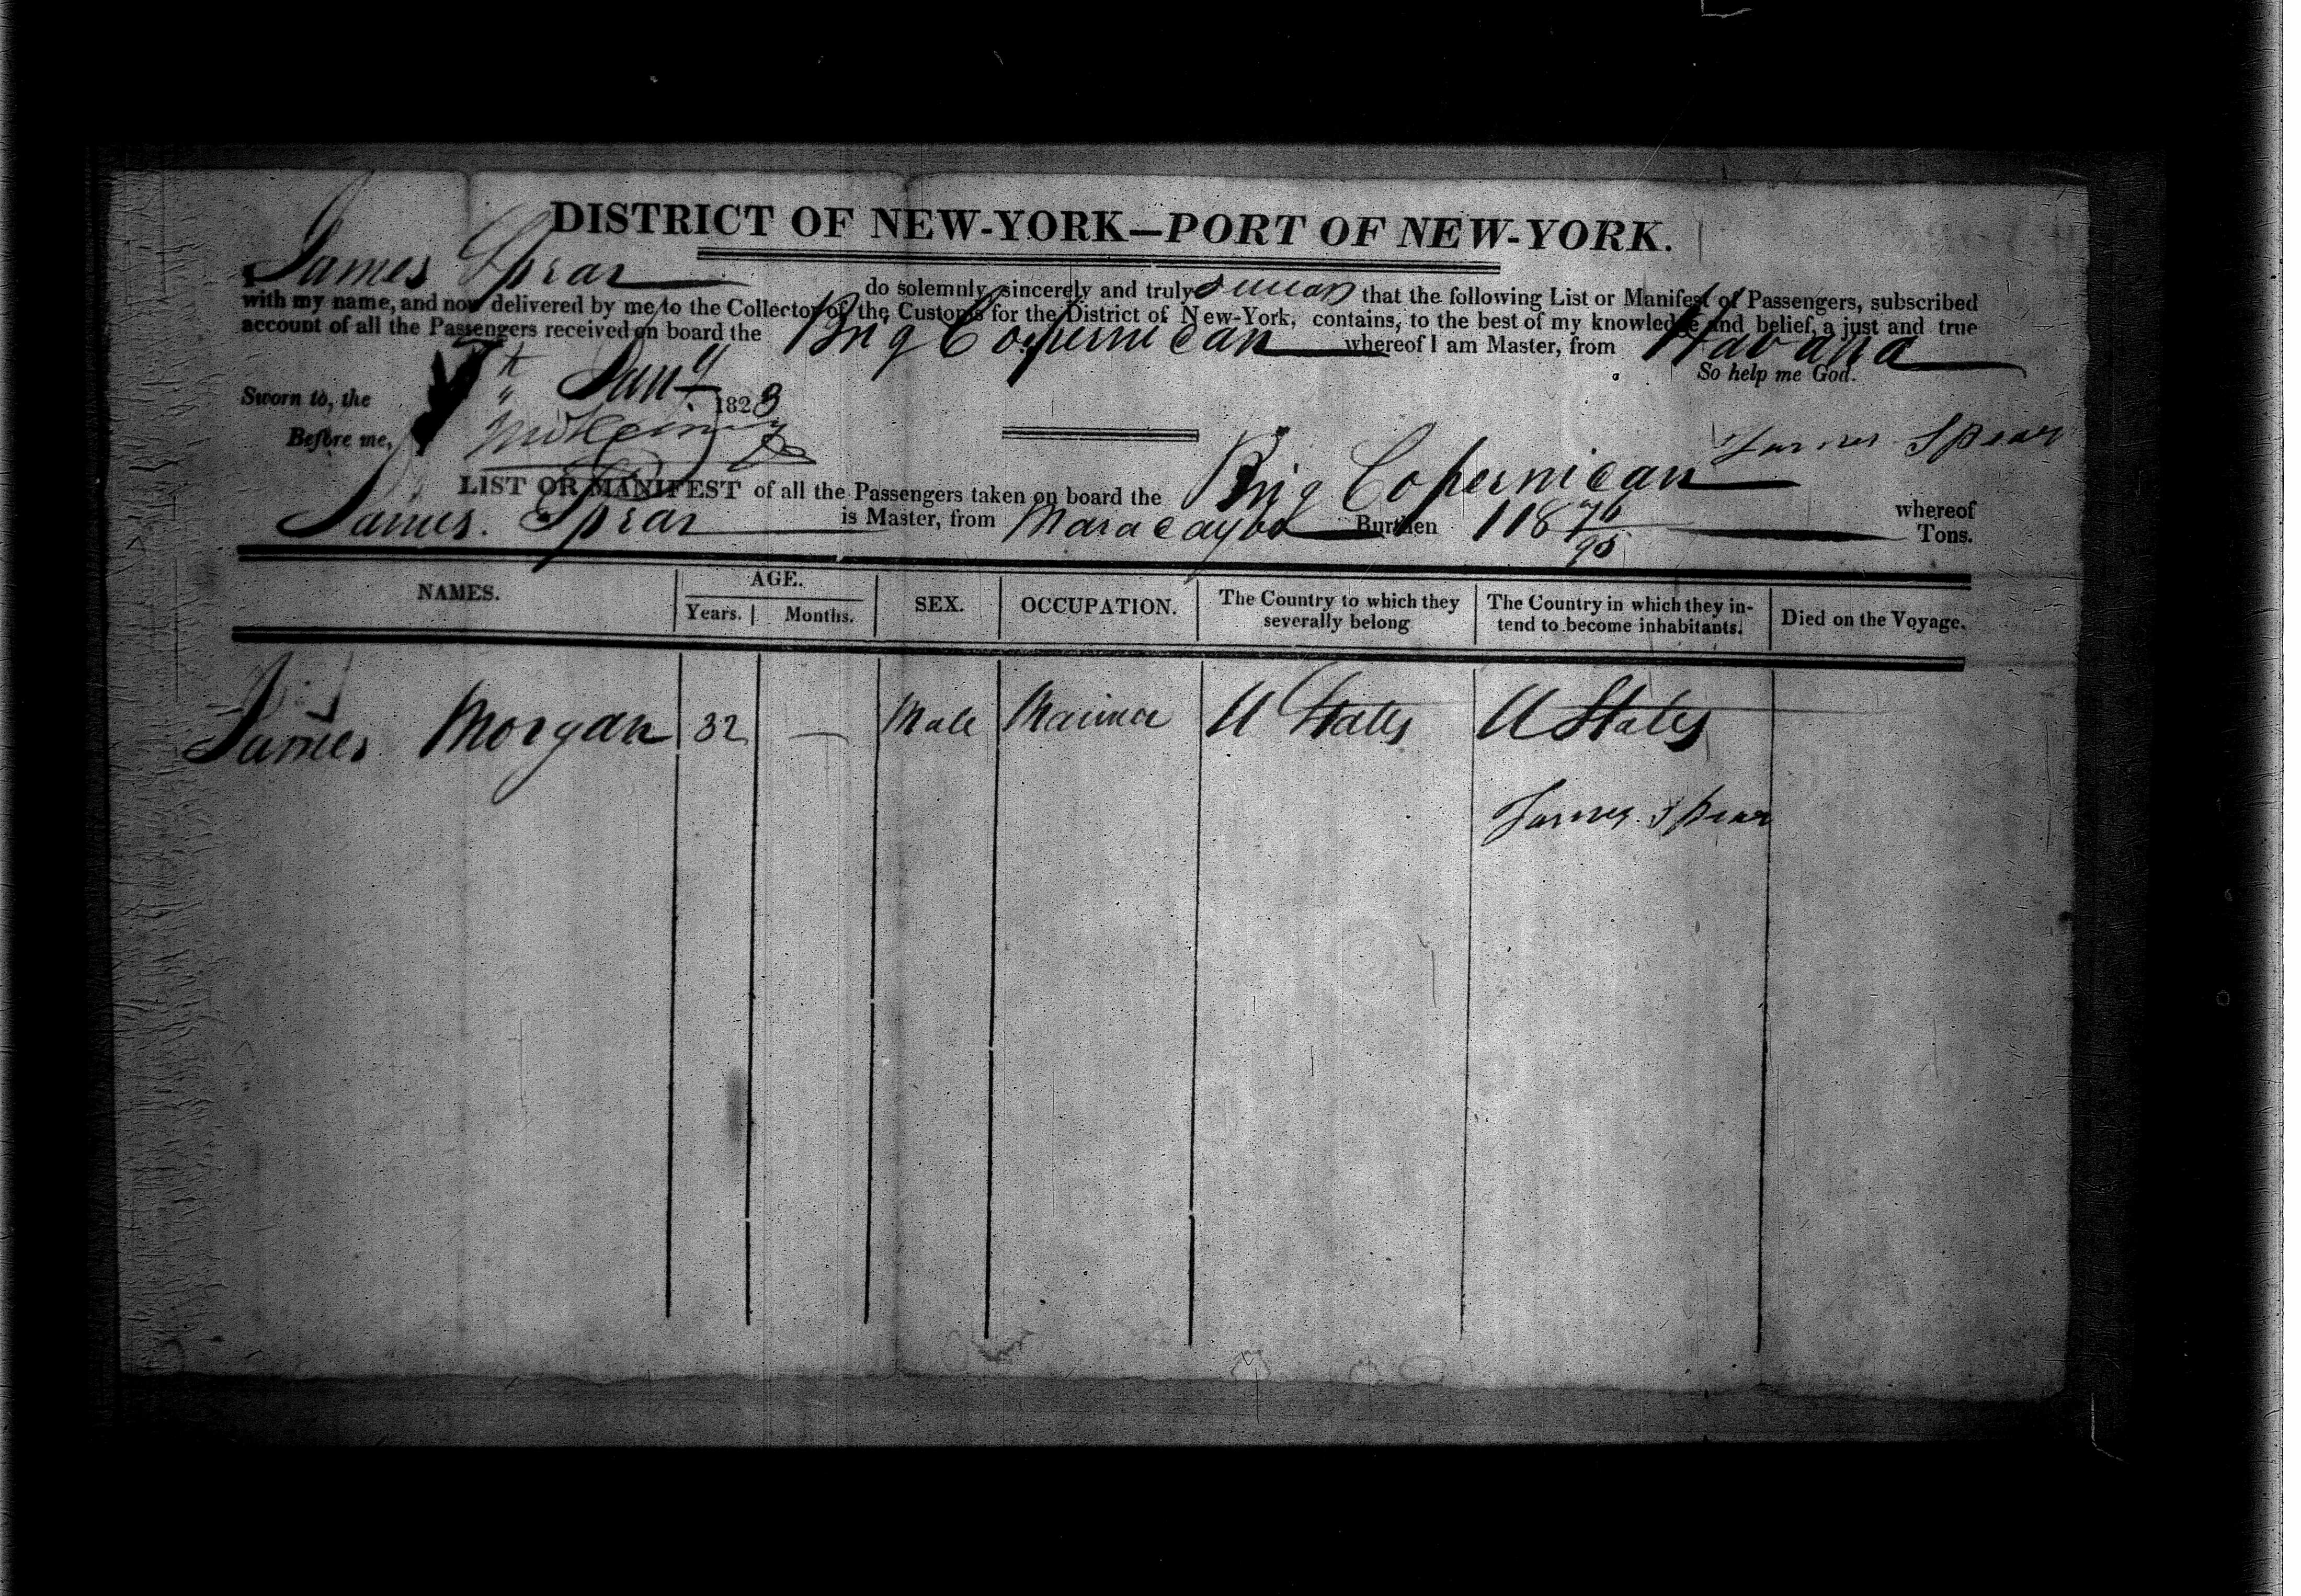 DISTRICT OF NEW-YORK—PORT OF NEW-YORK.
James Spear do solemnly, sincerely and truly swear that the following List or Manifest of Passengers, subscribed
with my name, and now delivered by me to the Collector of the Customs for the District of New-York, contains, to the best of my knowledge and belief, a just and true
account of all the Passengers received on board the Brig Copernican whereof I am Master, from Havana
So help me God.
Sworn to, the 7th Jany 1823
Before me,
James Spear
LIST OR MANIFEST of all the Passengers taken on board the Brig Copernican whereof
James. Spear is Master, from Maracaybo Burthen 118 76/95 Tons.
NAMES. AGE. SEX. OCCUPATION. The Country to which they severally belong The Country in which they in-tend to become inhabitants. Died on the Voyage.
Years. Months.
James Morgan 32 — Male Marine U States U States
James Spear